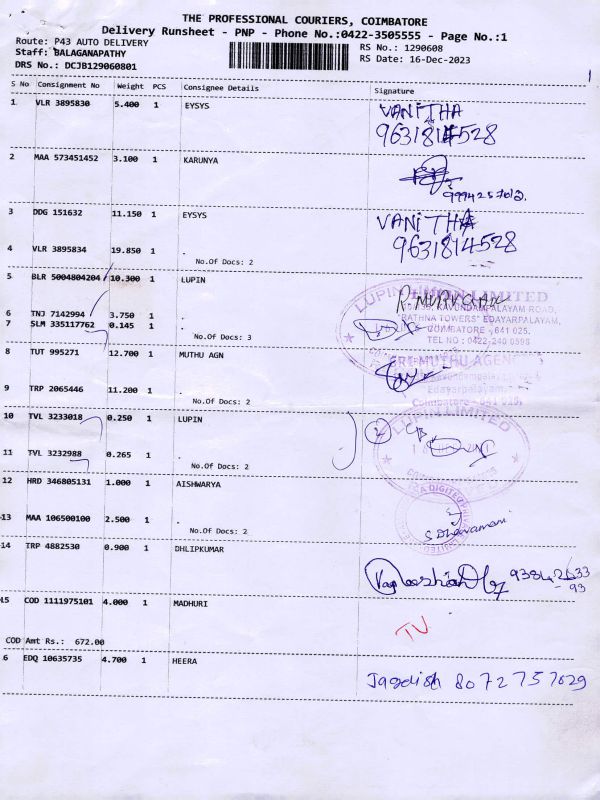 THE PROFESSIONAL COURIERS, COIMBATORE
Delivery Runsheet - PNP - Phone No.:0422-3505555 - Page No.:1
Route: P43 AUTO DELIVERY
RS No.: 1290608
Staff: BALAGANAPATHY
RS Date: 16-Dec-2023
DRS No.: DCJB129060801
S No Consignment No Weight PCS Consignee Details Signature
1 VLR 3895830 5.400 1 EYSYS VANITHA
9631814528
2 MAA 573451452 3.100 1 KARUNYA
3 DDG 151632 11.150 1 EYSYS VANITHA
4 VLR 3895834 19.850 1 . 9631814528
No.Of Docs: 2
5 BLR 5004804204 10.300 1 LUPIN R.MURUGAN
LUPIN LIMITED
KAVUNDAMPALAYAM ROAD,
"RATHNA TOWERS" EDAYARPALAYAM,
COIMBATORE - 641 025.
TEL NO : 0422-240 0598
6 TNJ 7142994 3.750 1 .
7 SLM 335117762 0.145 1 .
No.Of Docs: 3
8 TUT 995271 12.700 1 MUTHU AGN
SRI MUTHU AGENCIES
Edayarpalayam,
Coimbatore - 641 025.
9 TRP 2065446 11.200 1 .
No.Of Docs: 2
10 TVL 3233018 0.250 1 LUPIN
LUPIN LIMITED
11 TVL 3232988 0.265 1 .
No.Of Docs: 2
12 HRD 346805131 1.000 1 AISHWARYA
13 MAA 106500100 2.500 1 . S Dhavamani
No.Of Docs: 2
14 TRP 4882530 0.900 1 DHLIPKUMAR
15 COD 1111975101 4.000 1 MADHURI
TV
COD Amt Rs.: 672.00
6 EDQ 10635735 4.700 1 HEERA
Jagdish 8072757029